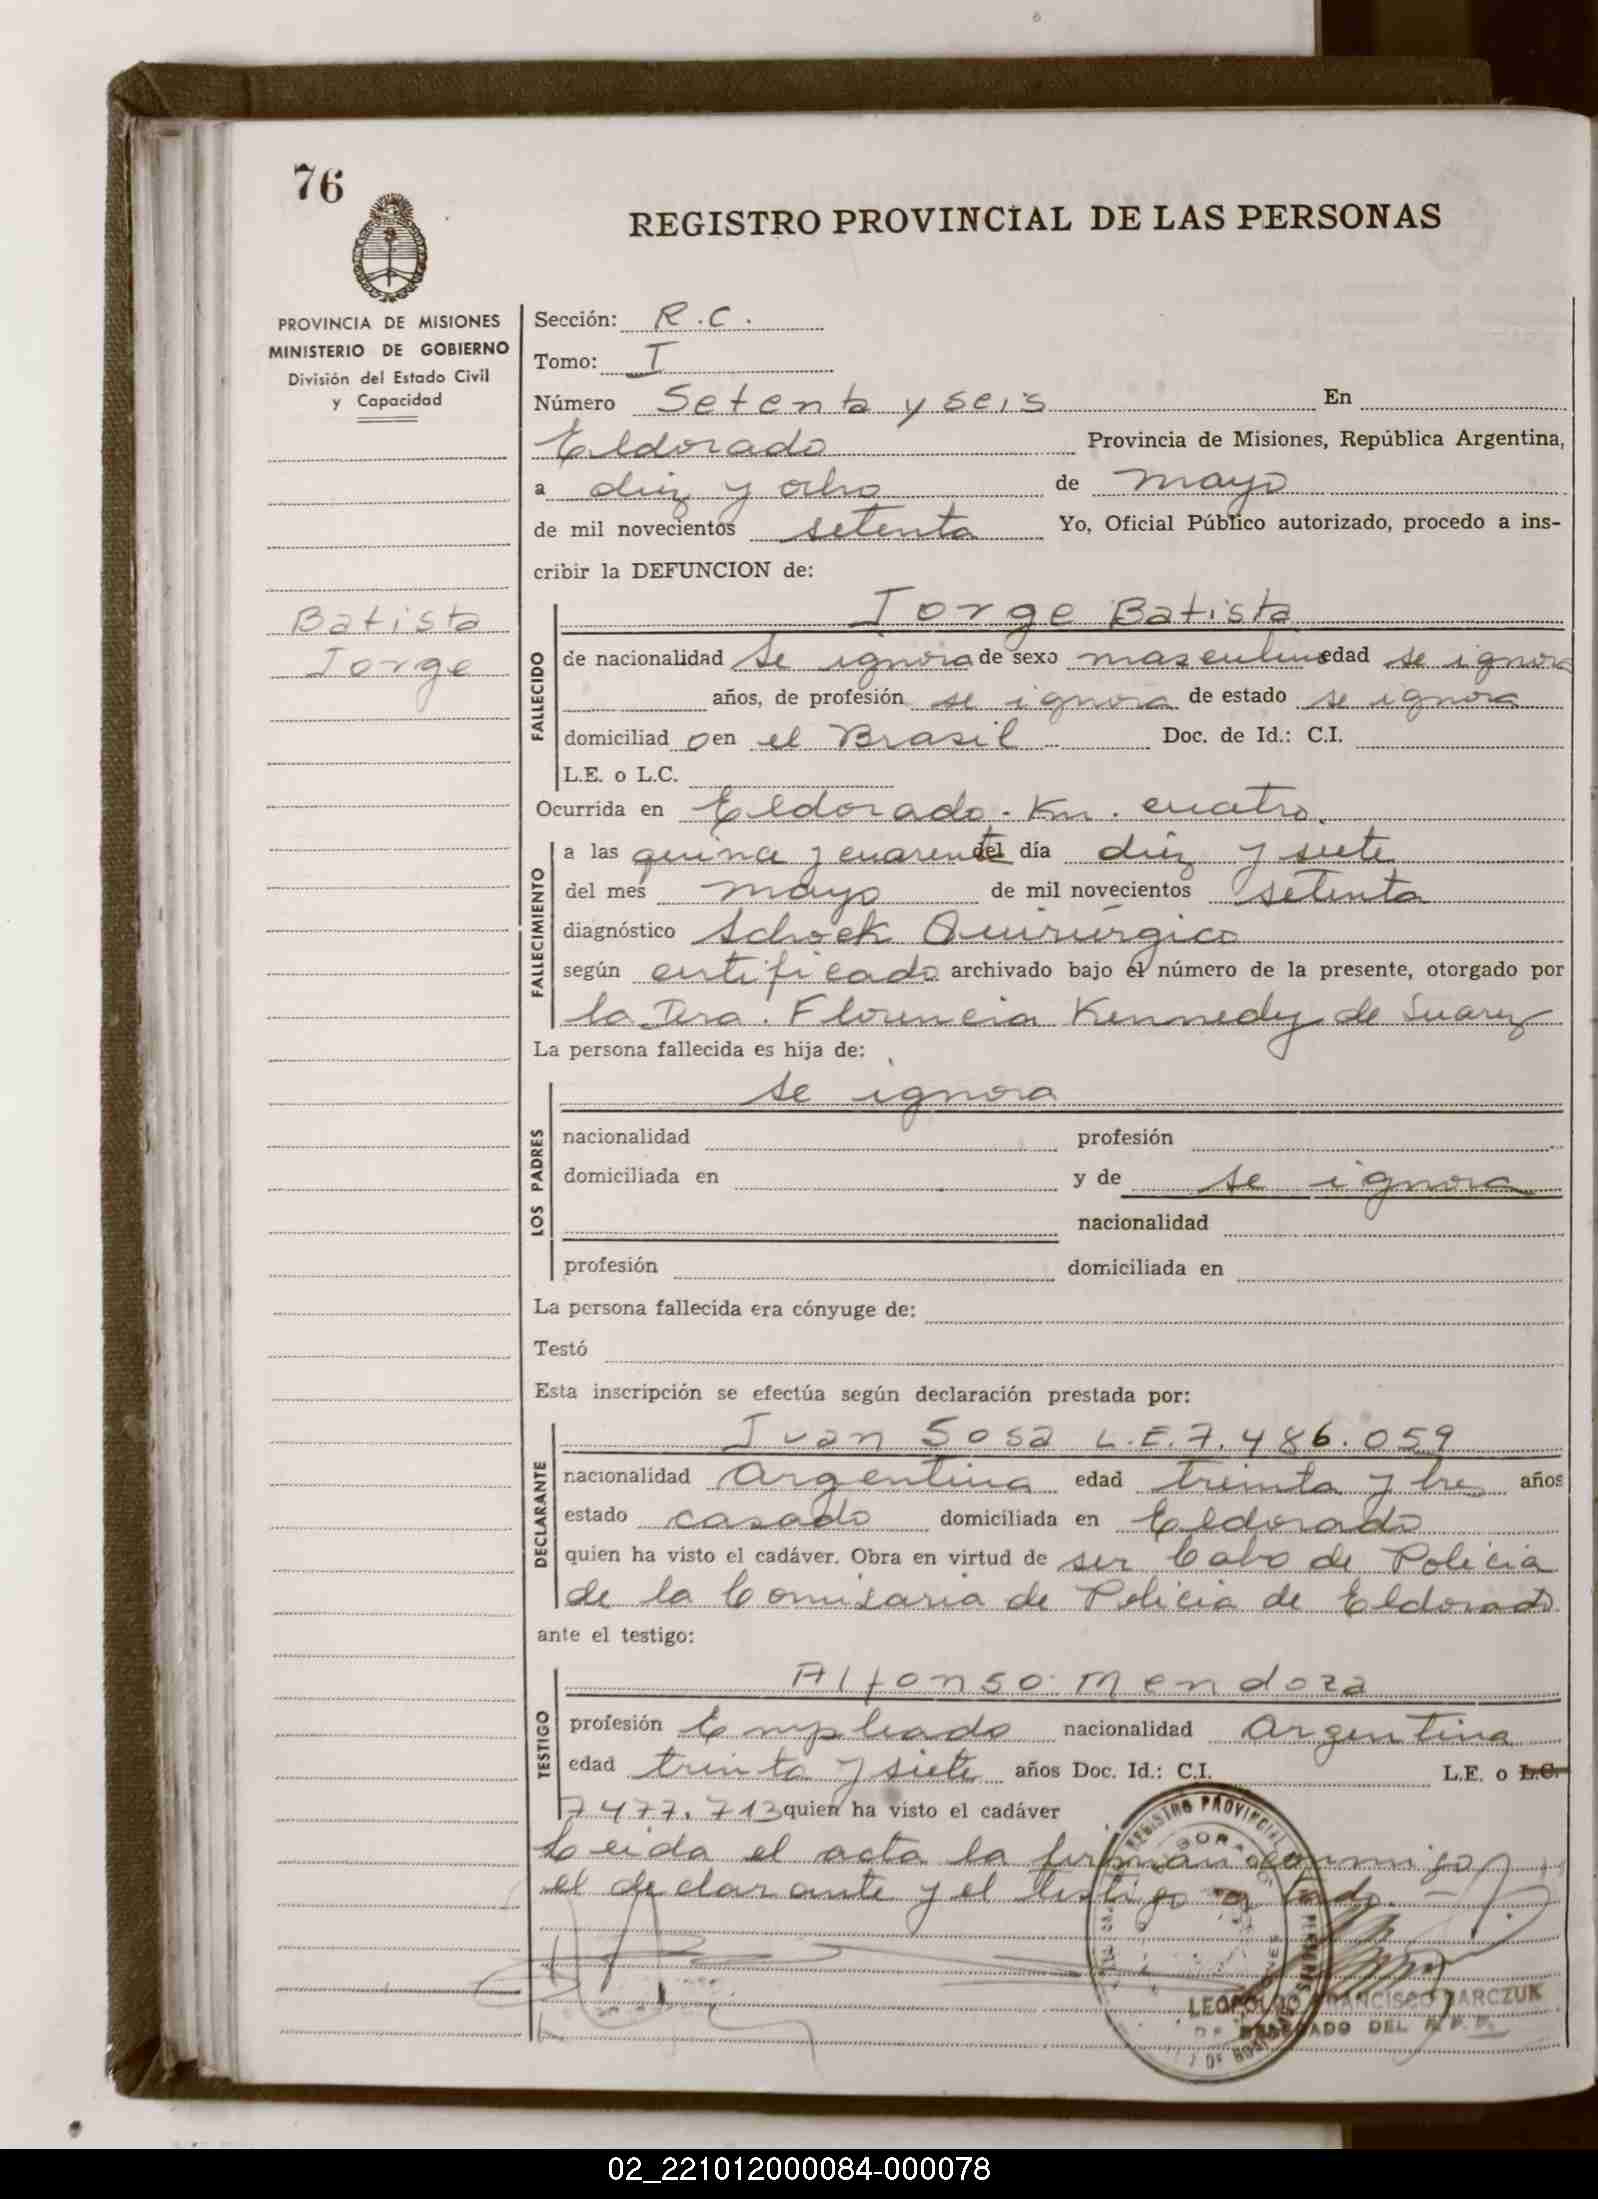 76
REGISTRO PROVINCIAL DE LAS PERSONAS
PROVINCIA DE MISIONES
MINISTERIO DE GOBIERNO
División del Estado Civil
y Capacidad
Batista
Jorge
Sección: R.C.
Tomo: I
Número Setenta y seis En
Eldorado Provincia de Misiones, República Argentina,
a diez y ocho de mayo
de mil novecientos setenta Yo, Oficial Público autorizado, procedo a ins-
cribir la DEFUNCION de:
FALLECIDO
Jorge Batista
de nacionalidad se ignora de sexo masculino edad se ignora
años, de profesión se ignora de estado se ignora
domiciliad o en el Brasil - Doc. de Id.: C.I.
L.E. o L.C.
Ocurrida en Eldorado - Km. cuatro.
FALLECIMIENTO
a las quince y cuarenta del día diez y siete
del mes mayo de mil novecientos setenta
diagnóstico Schock Quirúrgico
según certificado archivado bajo el número de la presente, otorgado por
la Dra. Florencia Kennedy de Suarez
La persona fallecida es hija de:
LOS PADRES
se ignora
nacionalidad profesión
domiciliada en y de se ignora
nacionalidad
profesión domiciliada en
La persona fallecida era cónyuge de:
Testó
Esta inscripción se efectúa según declaración prestada por:
DECLARANTE
Juan Sosa L.E. 7.486.059
nacionalidad Argentina edad treinta y tres años
estado casado domiciliada en Eldorado
quien ha visto el cadáver. Obra en virtud de ser Cabo de Policia
de la Comisaria de Policia de Eldorado
ante el testigo:
TESTIGO
Alfonso Mendoza
profesión Empleado nacionalidad Argentina
edad treinta y siete años Doc. Id.: C.I. L.E. o L.C.
7477.713 quien ha visto el cadáver
Leida el acta la firman conmigo
el declarante y el testigo
REGISTRO PROVINCIAL
LEOPOLDO FRANCISCO
DELEGADO DEL R.P.P.
02_221012000084-000078